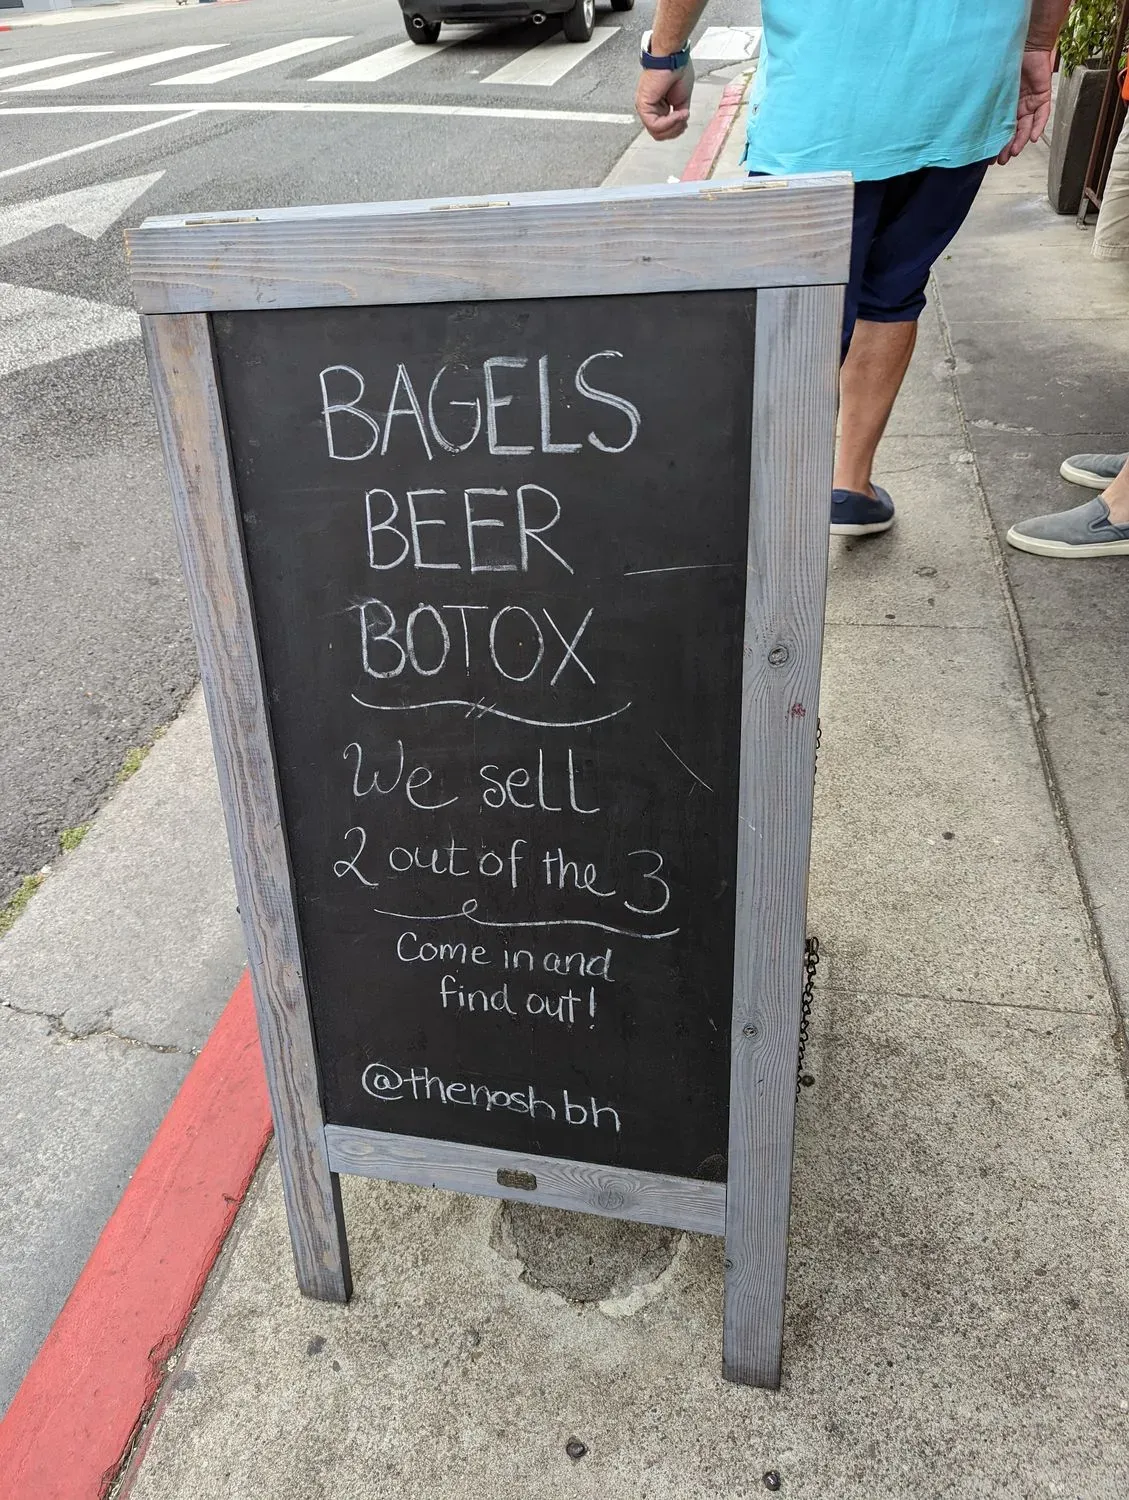 BAGELS
BEER
BOTOX
We sell
2 out of the 3
Come in and
find out!
@thenoshbh